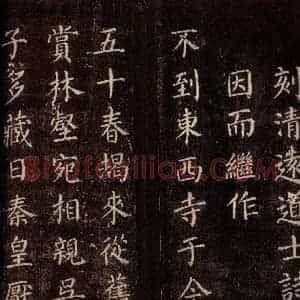 刻清遠道士詩
因而繼作
不到東西寺于今
五十春揭來從舊
賞林壑宛相親吳
子多藏日秦皇厭